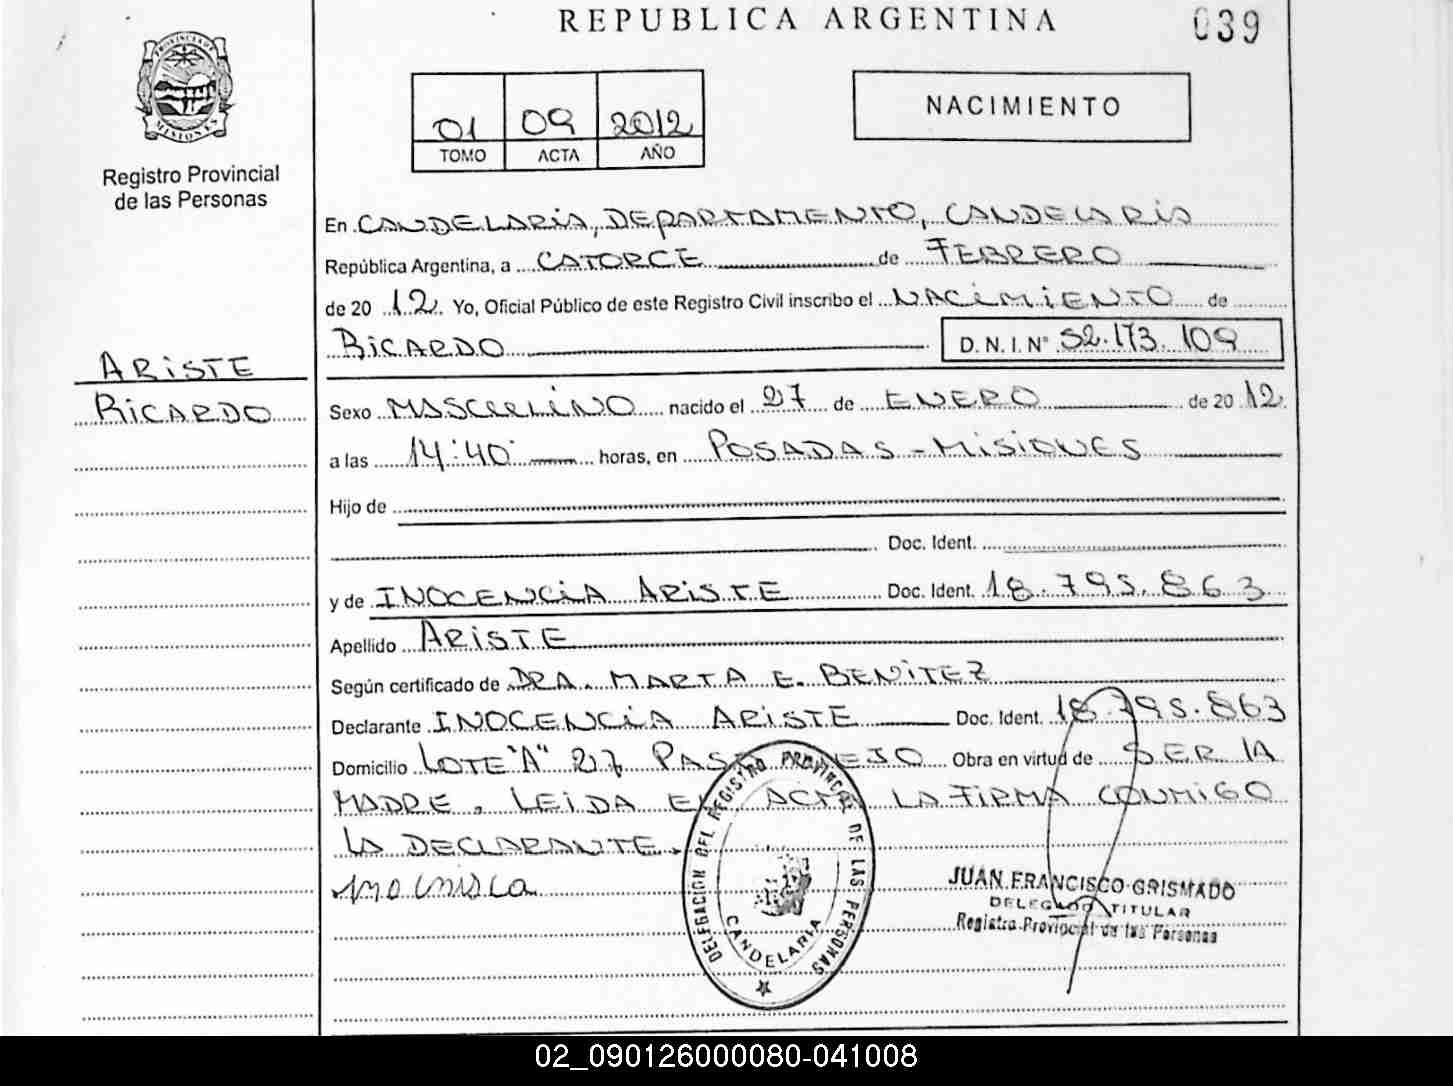 REPUBLICA ARGENTINA
039
PROVINCIA DE MISIONES
Registro Provincial
de las Personas
01 09 2012
TOMO ACTA AÑO
NACIMIENTO
En CANDELARIA, DEPARTAMENTO, CANDELARIA
República Argentina, a CATORCE de FEBRERO
de 20 12. Yo, Oficial Público de este Registro Civil inscribo el NACIMIENTO de
RICARDO D.N.I. N° 52.173.109
ARISTE
RICARDO
Sexo MASCULINO nacido el 27 de ENERO de 20 12.
a las 14:40 horas, en POSADAS - MISIONES
Hijo de
Doc. Ident.
y de INOCENCIA ARISTE Doc. Ident. 18.795.863
Apellido ARISTE
Según certificado de DRA. MARTA E. BENITEZ
Declarante INOCENCIA ARISTE Doc. Ident. 18.795.863
Domicilio LOTE "A" 27 Obra en virtud de SER LA
MADRE. LEIDA EL ACTA LA FIRMA CONMIGO
LA DECLARANTE.
DELEGACION DEL REGISTRO PROVINCIAL DE LAS PERSONAS
CANDELARIA
JUAN FRANCISCO GRISMADO
DELEGADO TITULAR
Registro Provincial de las Personas
02_090126000080-041008